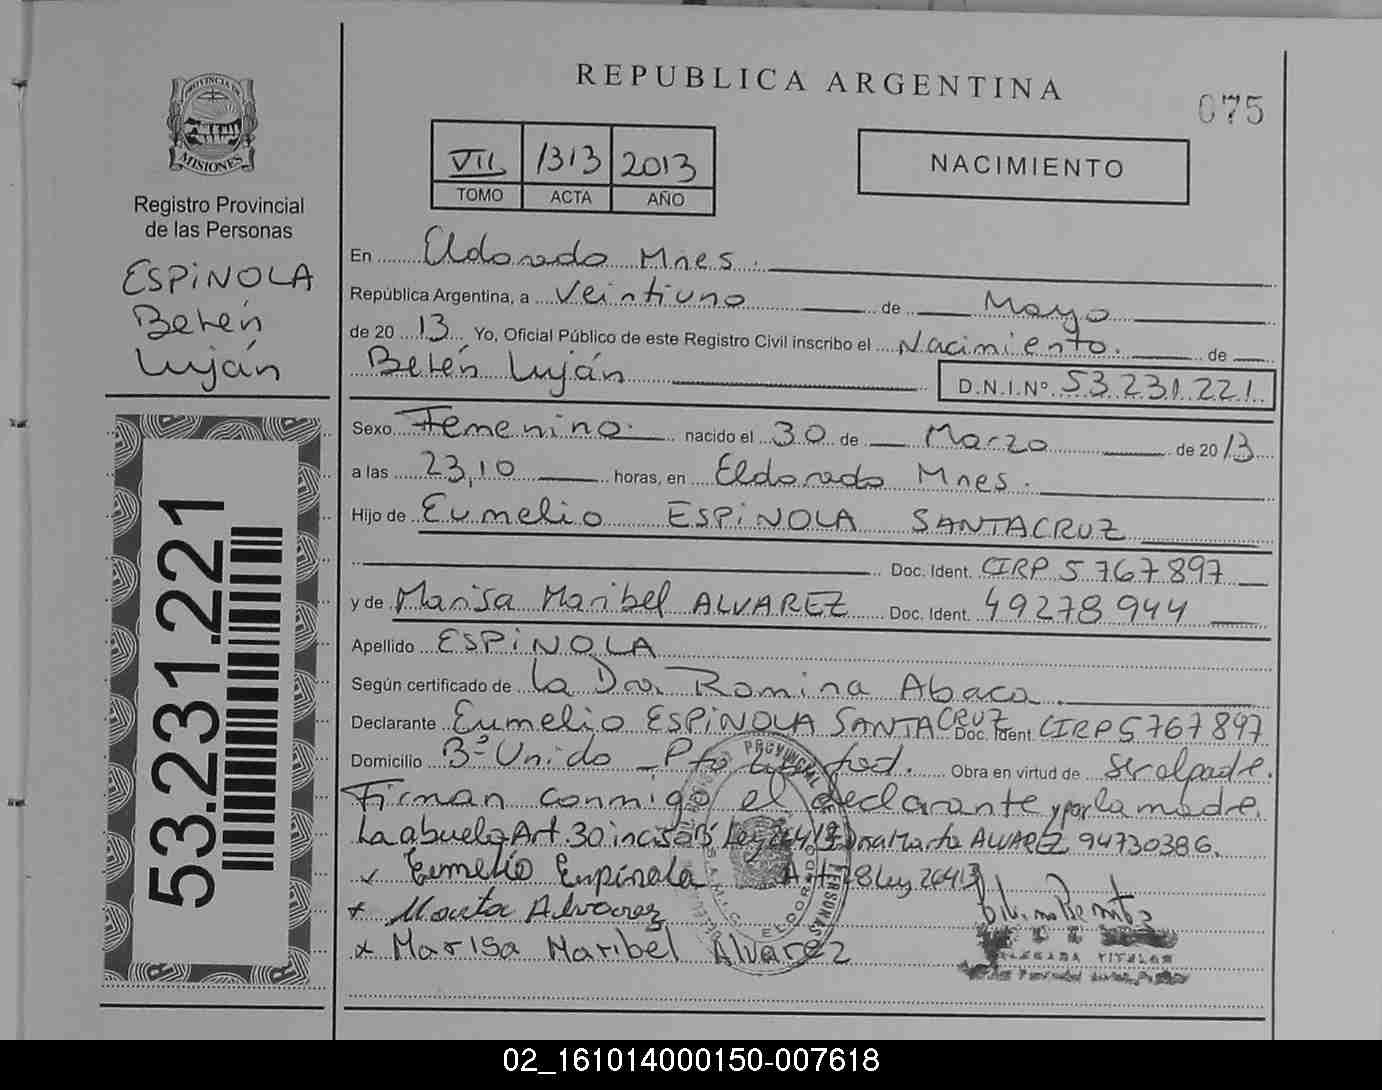 REPUBLICA ARGENTINA
075
PROVINCIA DE
MISIONES
Registro Provincial
de las Personas
ESPiNOLA
Belén
Luján
53.231.221
VII 1313 2013
TOMO ACTA AÑO
NACIMIENTO
En Eldorado Mnes.
República Argentina, a veintiuno de Mayo
de 20 13 Yo, Oficial Público de este Registro Civil inscribo el Nacimiento. de
Belén Luján D.N.I.Nº 53.231.221
Sexo Femenino. nacido el 30 de Marzo de 20 13
a las 23,10 horas, en Eldorado Mnes.
Hijo de Eumelio ESPiNOLA SANTACRUZ
Doc. Ident. CIRP 5 767 897
y de Marisa Maribel ALVAREZ Doc. Ident. 49278944
Apellido ESPiNOLA
Según certificado de La Dra. Romina Abaca
Declarante Eumelio ESPiNOLA SANTACRUZ Doc. Ident CIRP 5 767 897
Domicilio Bº Unido Pto Doc. Obra en virtud de Ser el padre.
Firman conmigo el declarante y por la madre.
La abuela Art. 30 inciso Ley 26413 Dna Marta ALVAREZ 94730386.
Eumelio Espinola Art 28 Ley 26413
x Marta Alvarez
x Marisa Maribel Alvarez
DELEGADA TITULAR
02_161014000150-007618